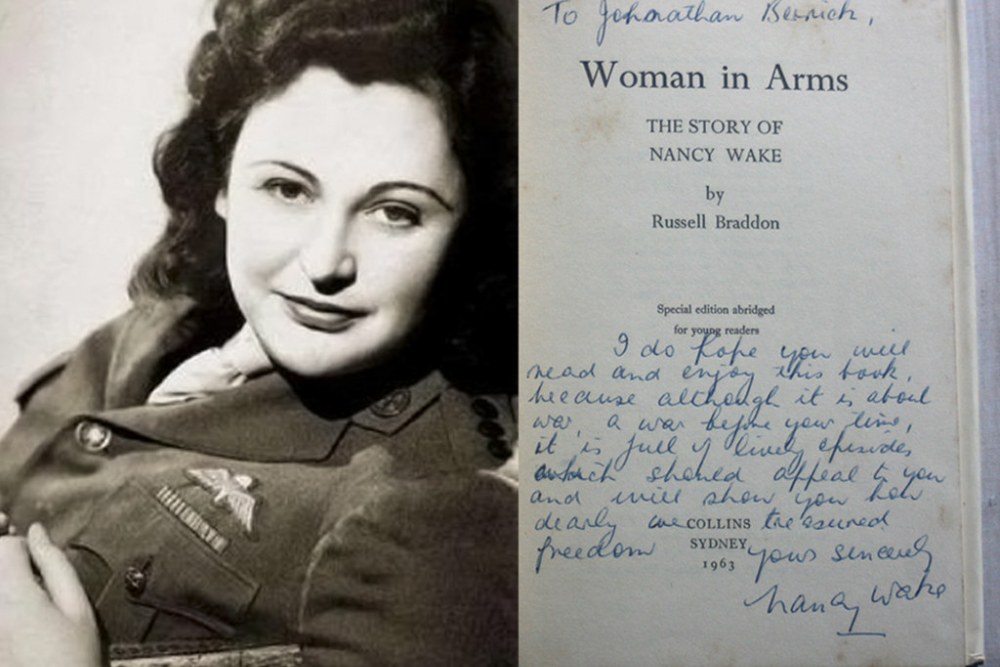 To Johnathan Bernich,
Woman in Arms
THE STORY OF
NANCY WAKE
by
Russell Braddon
Special edition abridged
for young readers
I do hope you will
read and enjoy this book,
because although it is about
war, a war before your time,
it is full of lively episodes
which should appeal to you
and will show you how
dearly we treasured
freedom
COLLINS
SYDNEY
1963
yours sincerely
Nancy Wake